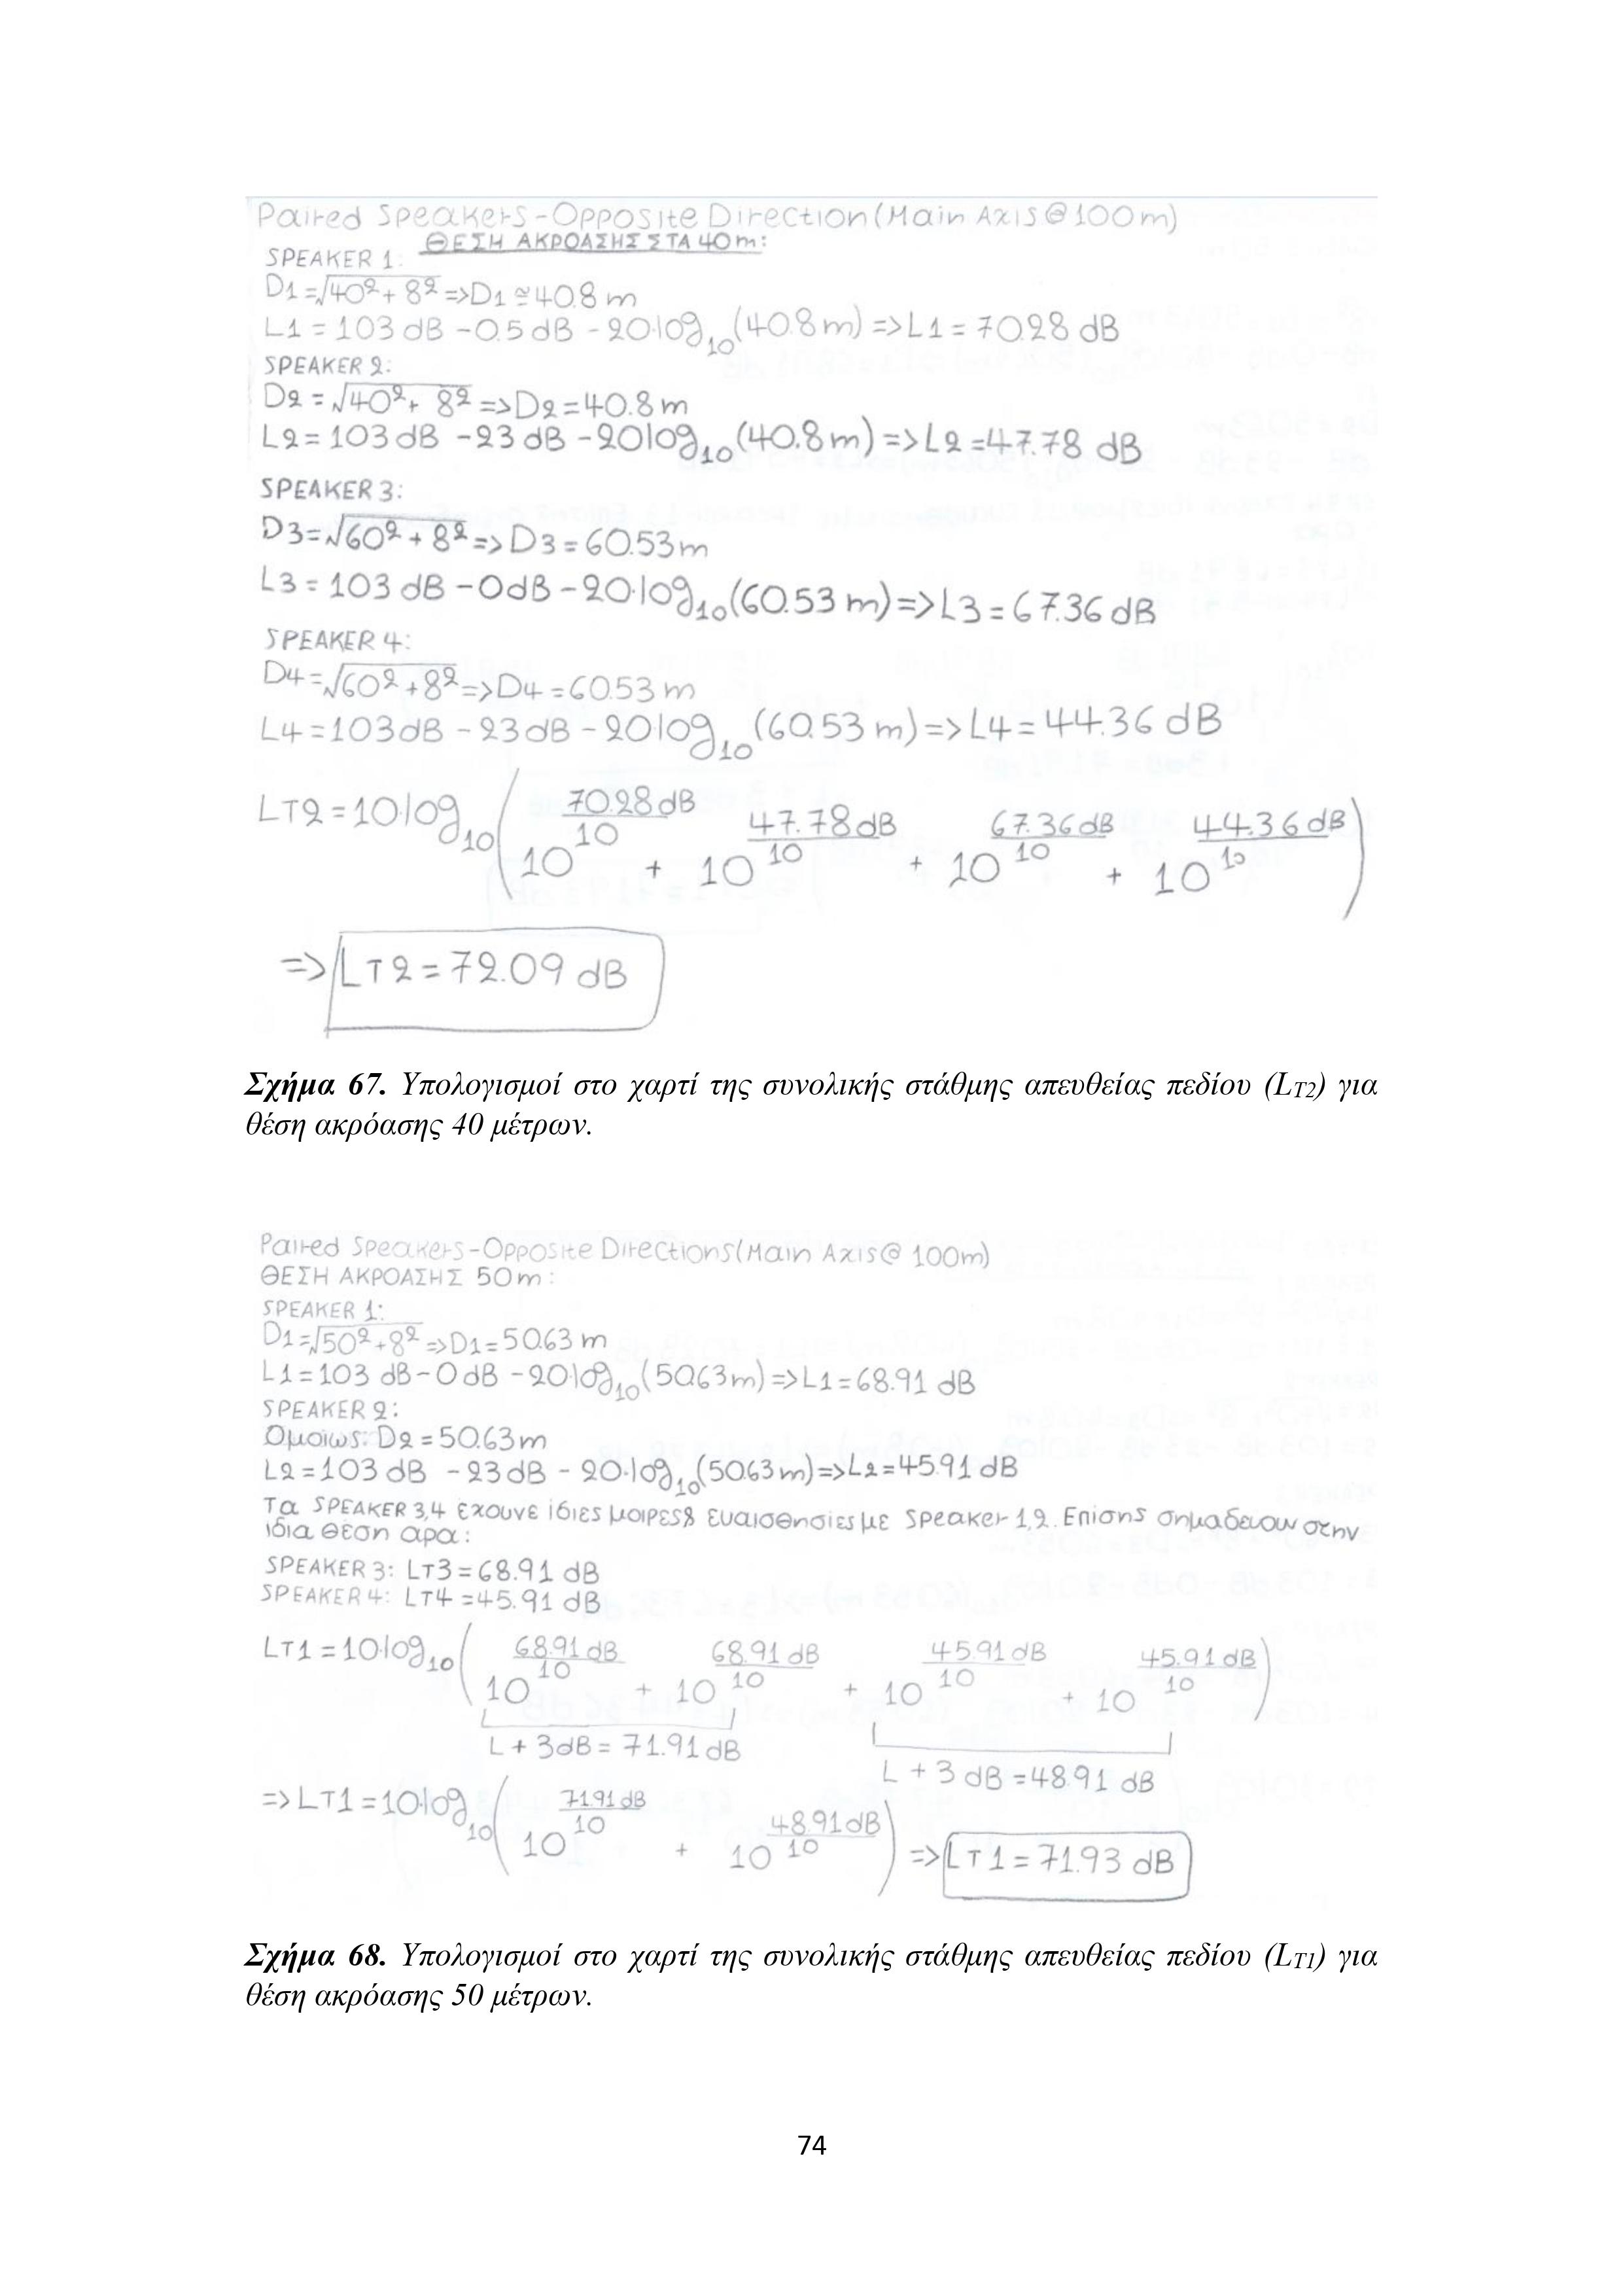 Paired Speakers-Opposite Direction (Main Axis @ 100m)
ΘΕΣΗ ΑΚΡΟΑΣΗΣ ΣΤΑ 40m:
SPEAKER 1:
D1=√40²+8² => D1≅40.8 m
L1 = 103 dB - 0.5 dB - 20·log₁₀(40.8m) => L1 = 70.28 dB
SPEAKER 2:
D2 = √40²+ 8² => D2 = 40.8 m
L2 = 103 dB - 23 dB - 20log₁₀(40.8m) => L2 = 47.78 dB
SPEAKER 3:
D3=√60²+8² => D3 = 60.53m
L3 = 103 dB - 0dB - 20·log₁₀(60.53 m) => L3 = 67.36 dB
SPEAKER 4:
D4=√60²+8² => D4 = 60.53 m
L4 = 103dB - 23dB - 20log₁₀(60.53 m) => L4 = 44.36 dB
LT2 = 10·log₁₀(10^(70.28dB/10) + 10^(47.78dB/10) + 10^(67.36dB/10) + 10^(44.36dB/10))
=> LT2 = 72.09 dB
Σχήμα 67. Υπολογισμοί στο χαρτί της συνολικής στάθμης απευθείας πεδίου (LT2) για
θέση ακρόασης 40 μέτρων.
Paired Speakers-Opposite Directions(Main Axis@ 100m)
ΘΕΣΗ ΑΚΡΟΑΣΗΣ 50m:
SPEAKER 1:
D1=√50²+8² => D1=50.63 m
L1=103 dB-0dB -20·log₁₀(50.63m)=>L1=68.91 dB
SPEAKER 2:
Ομοίως: D2=50.63m
L2=103 dB -23dB - 20·log₁₀(50.63m)=>L2=45.91 dB
Τα SPEAKER 3,4 έχουνε ίδιες μοίρες& ευαισθησίες με Speaker 1,2. Επίσης σημαδεύουν στην
ίδια θέση άρα:
SPEAKER 3: LT3=68.91 dB
SPEAKER 4: LT4=45.91 dB
LT1 = 10·log₁₀(10^(68.91dB/10) + 10^(68.91dB/10) + 10^(45.91dB/10) + 10^(45.91dB/10))
L + 3dB = 71.91 dB
L + 3 dB = 48.91 dB
=> LT1 = 10·log₁₀(10^(71.91dB/10) + 10^(48.91dB/10)) => LT1 = 71.93 dB
Σχήμα 68. Υπολογισμοί στο χαρτί της συνολικής στάθμης απευθείας πεδίου (LT1) για
θέση ακρόασης 50 μέτρων.
74